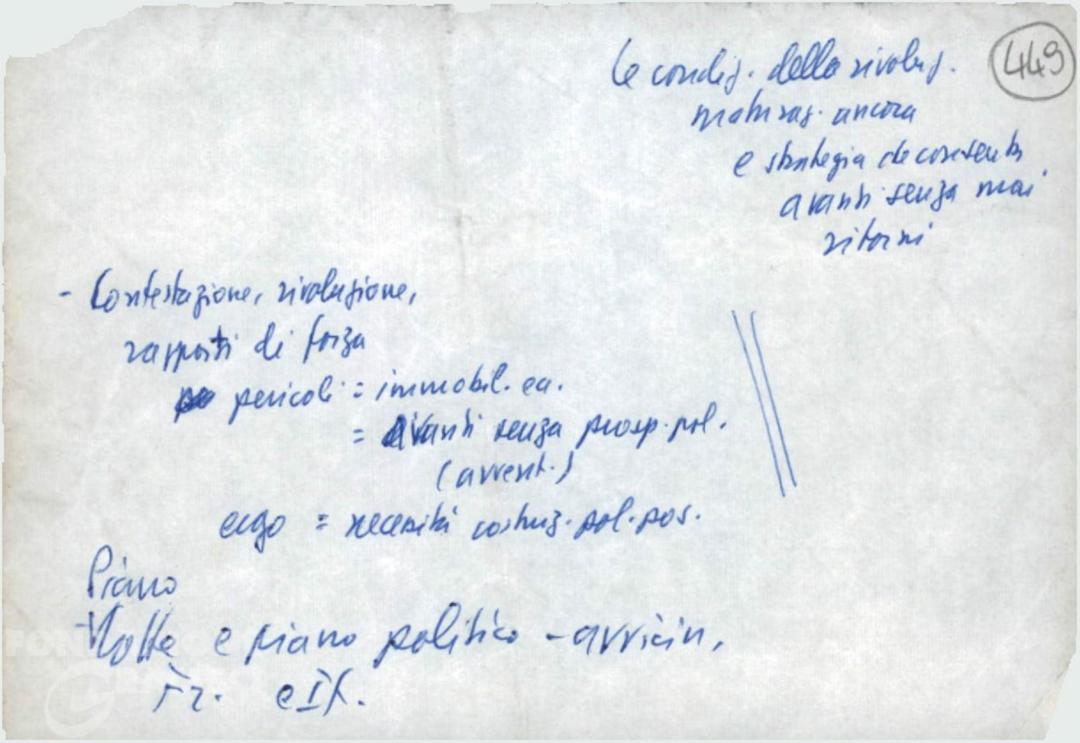 449
le condiz. della rivoluz.
maturaz. ancora
e strategia de consenti
avanti senza mai
ritorni
- Contestazione, rivoluzione,
rapporti di forza
pericoli = immobil. ec.
= Avanti senza prosp. pol.
(avvent.)
ergo = necessità costruz. pol. pos.
Piano
e piano politico - avvicin.
Fr. e It.